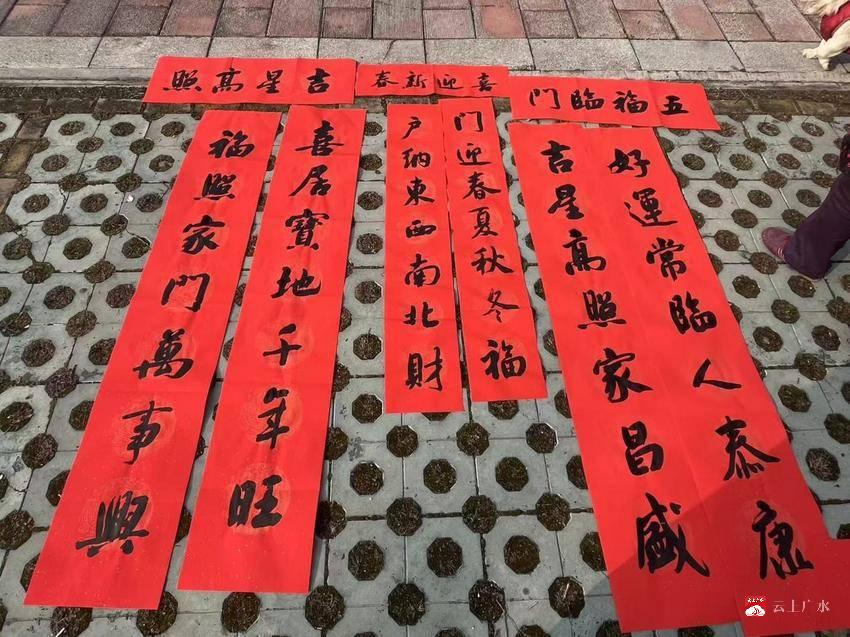 吉星高照
喜迎新春
五福臨门
喜居寶地千年旺
福照家门萬事興
门迎春夏秋冬福
户納東西南北財
好運常臨人泰康
吉星高照家昌盛
云上广水